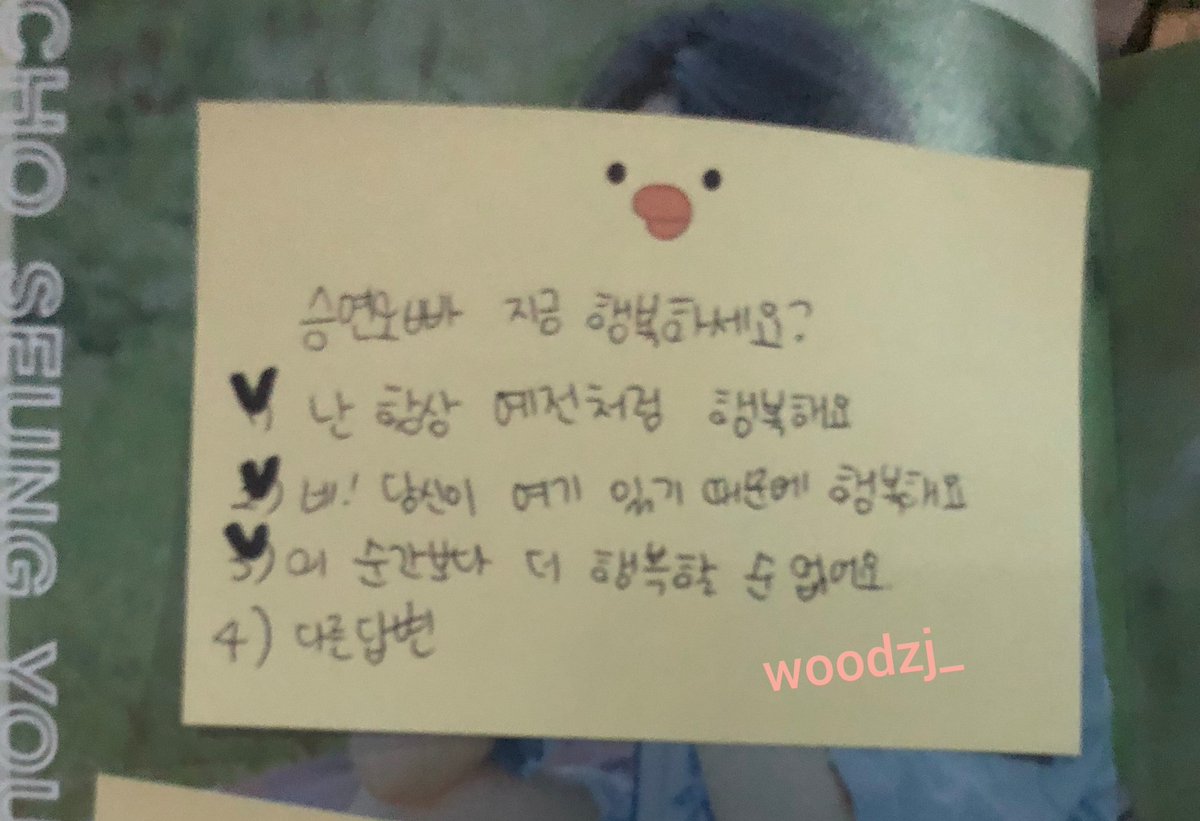 CHO SEUNG YOU
승연오빠 지금 행복하세요?
난 항상 예전처럼 행복해요
2) 네! 당신이 여기 있기 때문에 행복해요
3) 이 순간보다 더 행복할 수 없어요
4) 다른답변
woodzj_